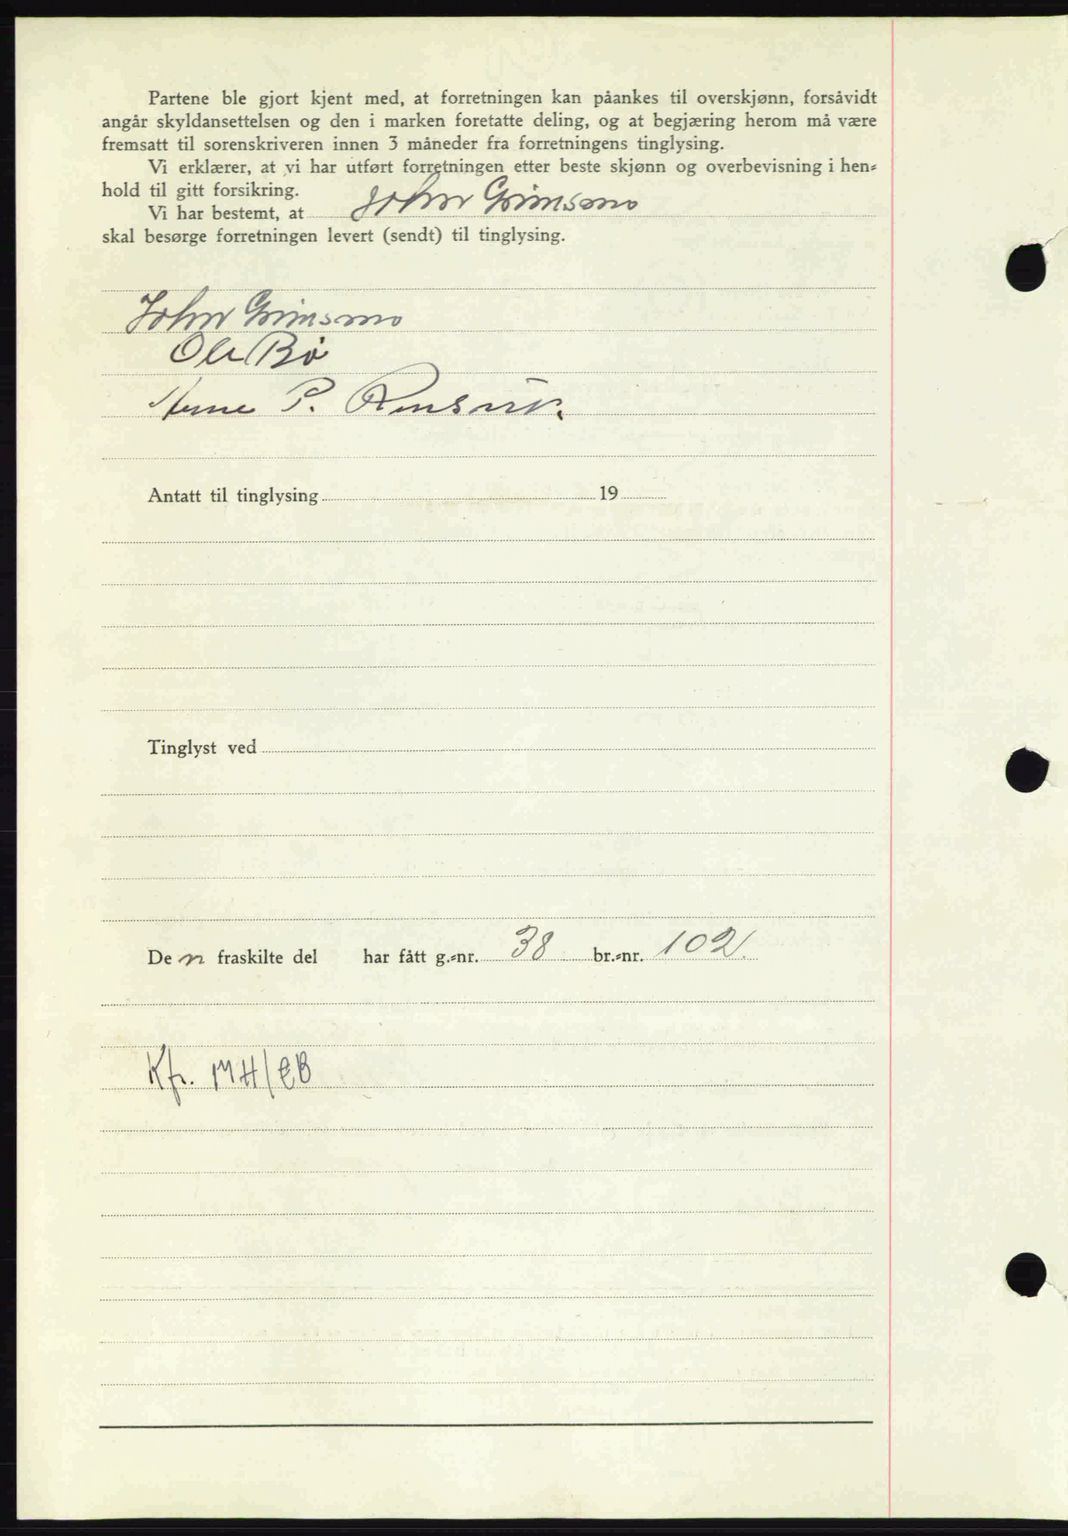 Partene ble gjort kjent med, at forretningen kan påankes til overskjønn, forsåvidt
angår skyldansettelsen og den i marken foretatte deling, og at begjæring herom må være
fremsatt til sorenskriveren innen 3 måneder fra forretningens tinglysing.
Vi erklærer, at vi har utført forretningen etter beste skjønn og overbevisning i hen-
hold til gitt forsikring.
Vi har bestemt, at John Grimsmo
skal besørge forretningen levert (sendt) til tinglysing.
John Grimsmo
Ole Bø
Arne P.
Antatt til tinglysing 19
Tinglyst ved
De n fraskilte del har fått g.-nr. 38 br.-nr. 102.
Kfr. MH/EB